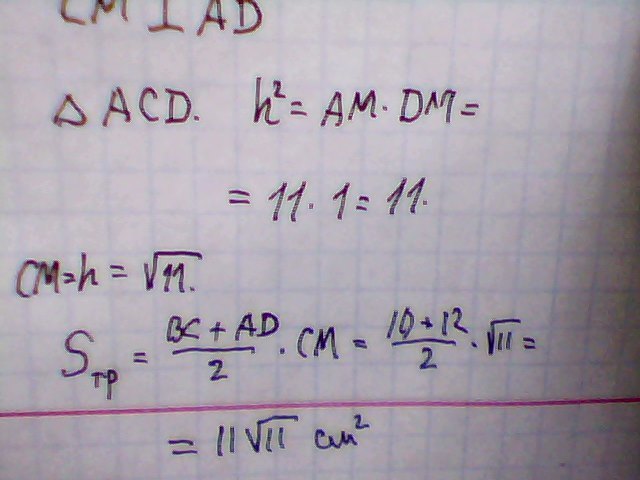 CM ⊥ AD
△ ACD. h² = AM · DM =
= 11 · 1 = 11.
CM = h = √11.
Sтр = (BC + AD)/2 · CM = (10 + 12)/2 · √11 =
= 11√11 см²